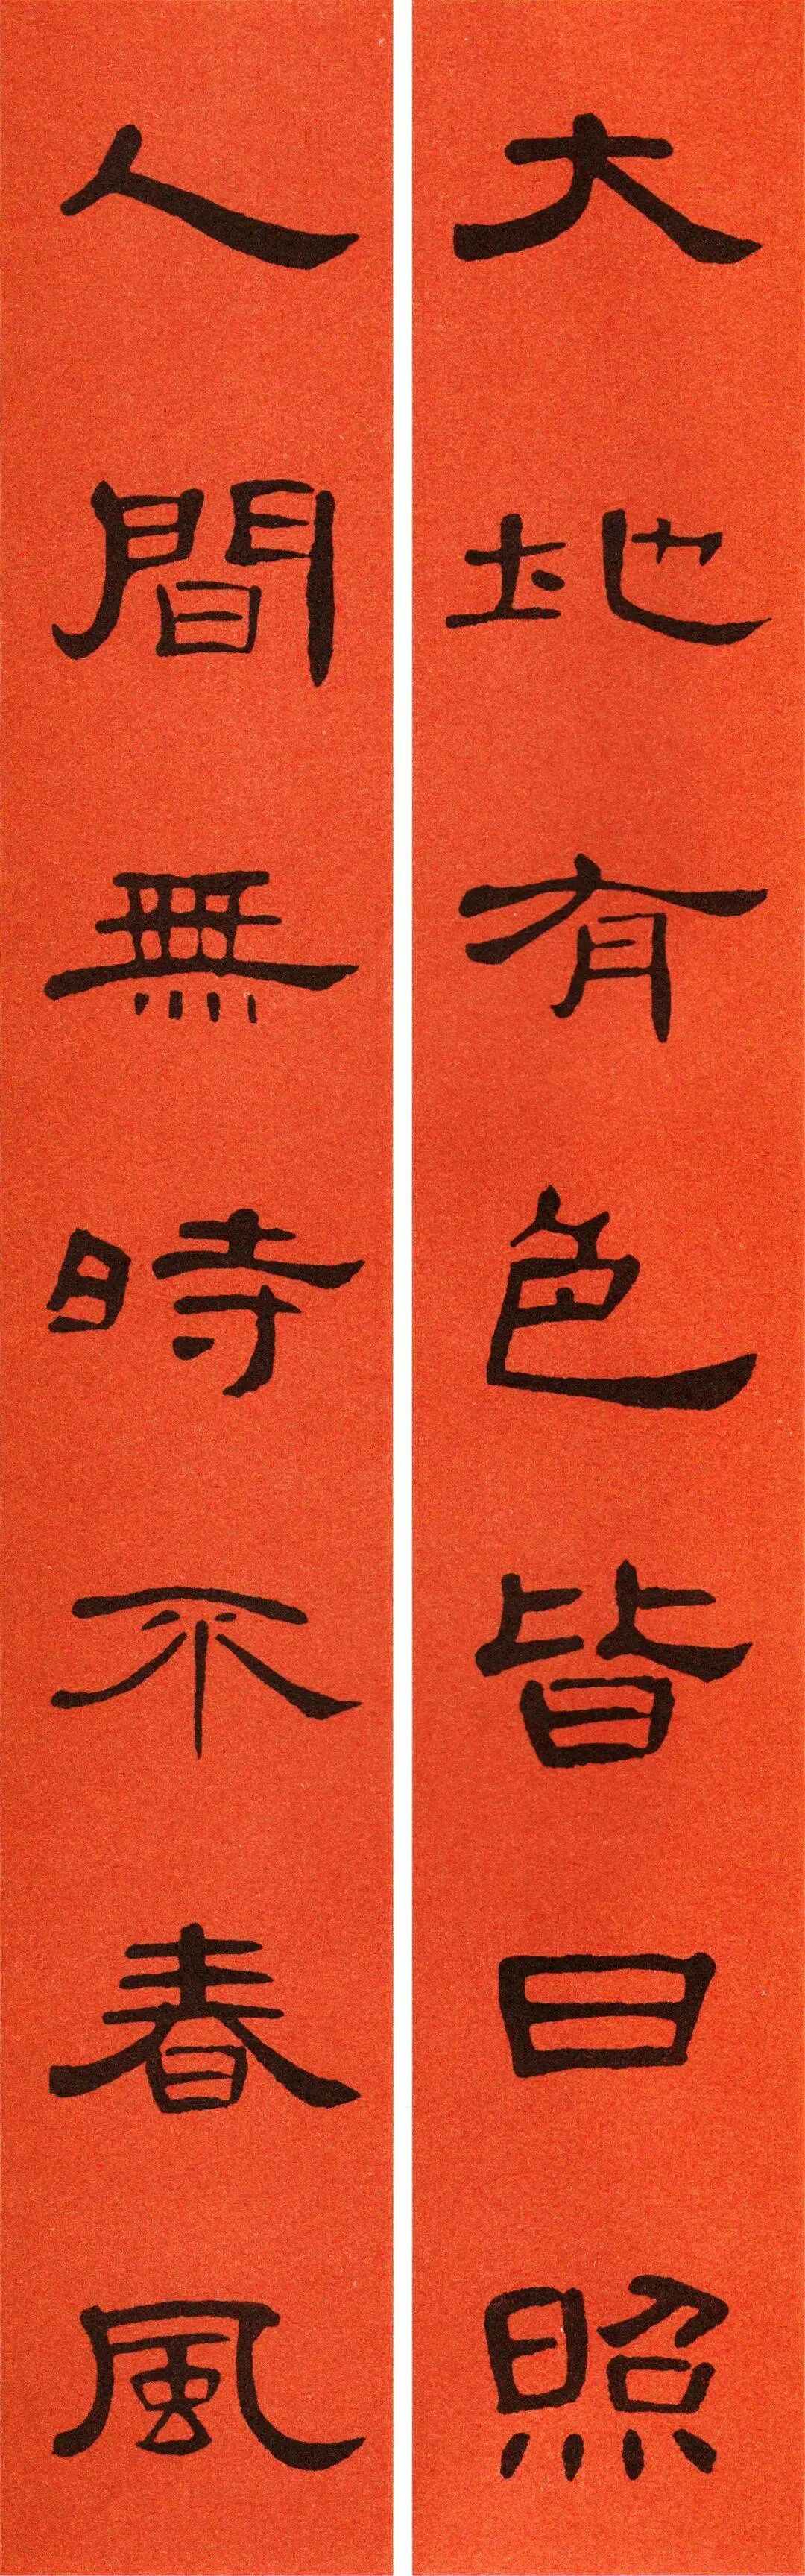 大地有色皆日照
人間無時不春風